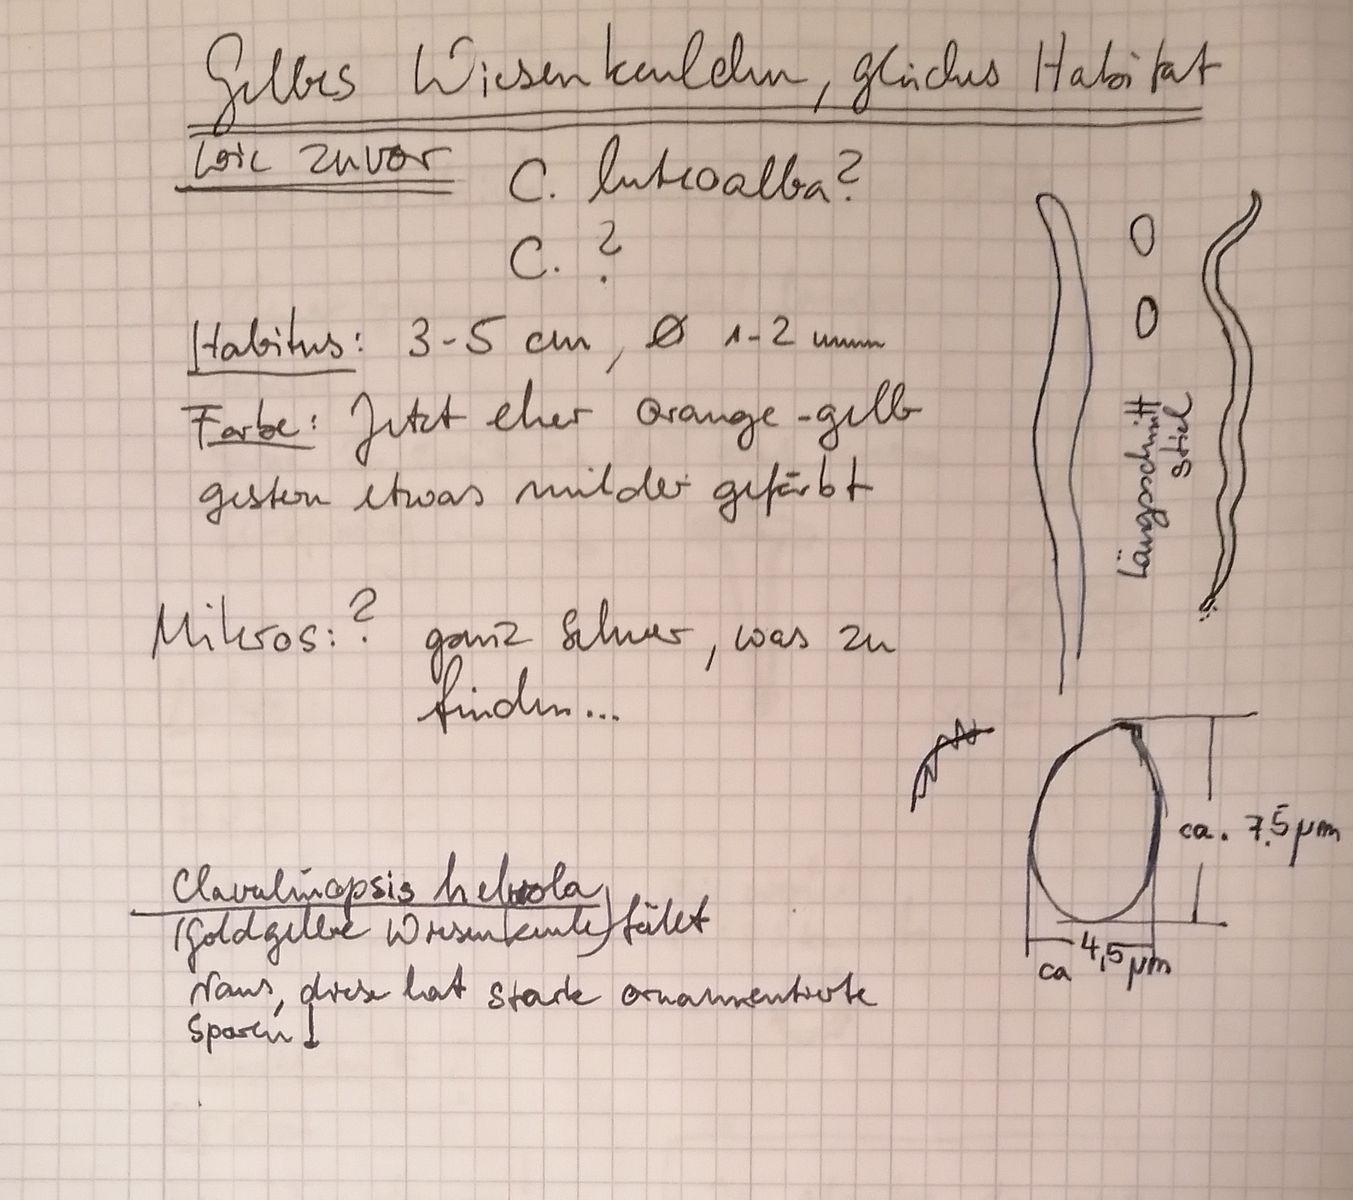 Gelbes Wiesenkeulchen, gleiches Habitat
wie zuvor
C. luteoalba?
C. ?
Habitus: 3-5 cm, Ø 1-2 mm
Farbe: Jetzt eher orange-gelb
gestern etwas milder gefärbt
Längsschnitt
Stiel
Mikros: ? ganz schwer, was zu
finden...
ca. 7,5 µm
ca 4,5 µm
Clavulinopsis helvola
(Goldgelbe Wiesenkeule) fällt
raus, diese hat stark ornamentierte
Sporen!